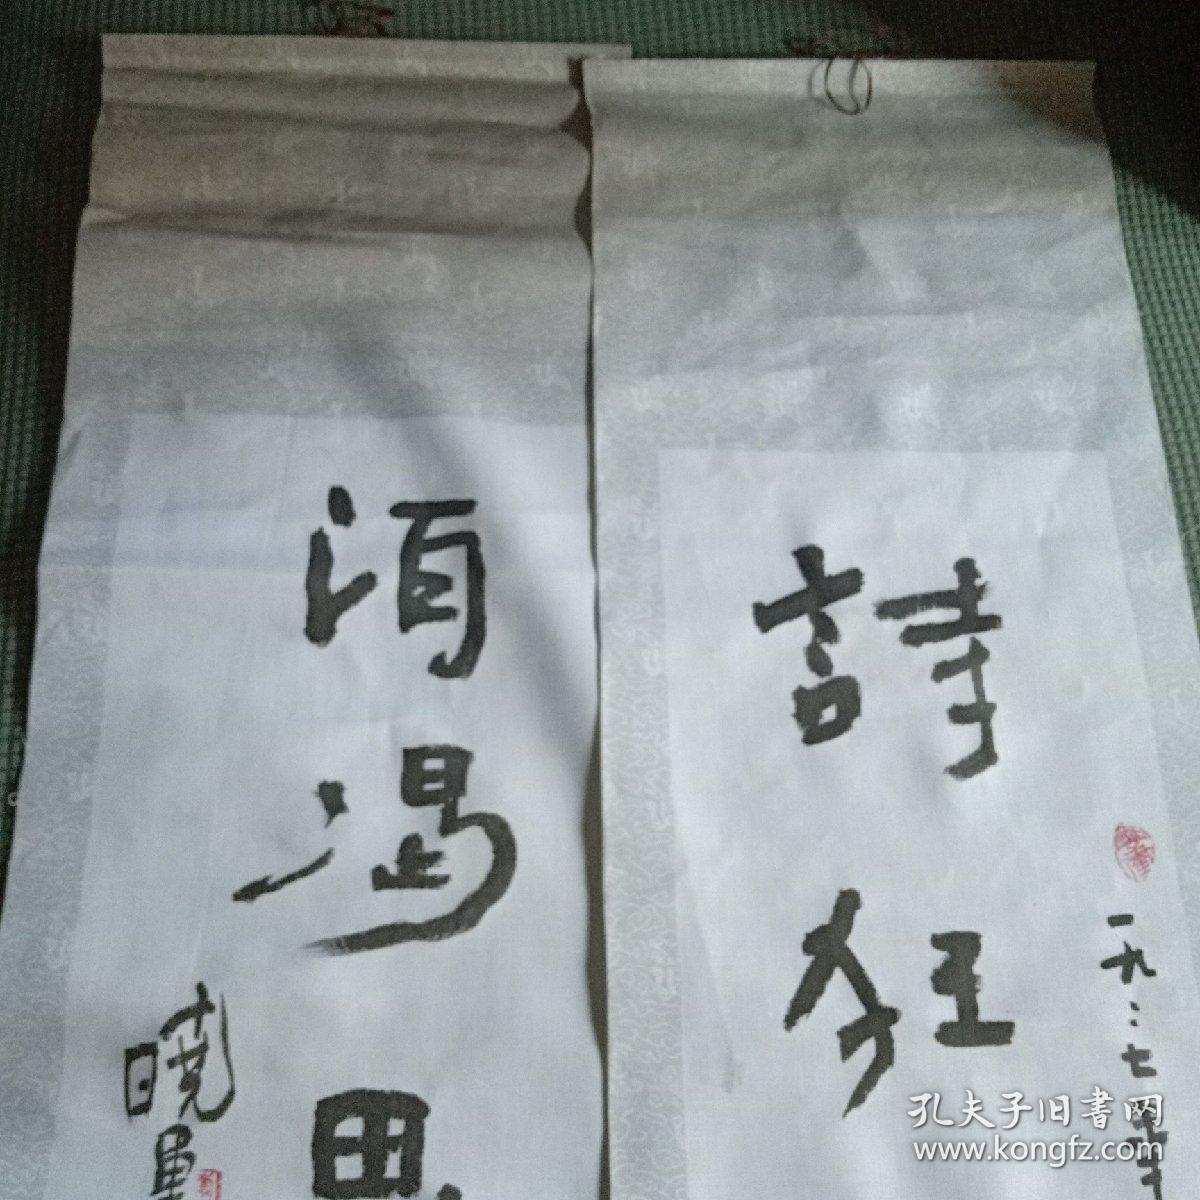 詩狂
一九
七年
酒渴思
曉軍
孔夫子旧書网
www.kongfz.com